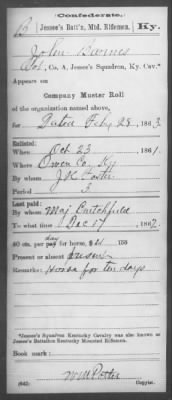 Confederate.
B | Jessee's Batt'n, Mtd. Riflemen. | Ky.
John Barnes
Co. A, Jessee's Squadron, Ky. Cav.*
Appears on
Company Muster Roll
of the organization named above,
for Dated Feby 28, 1863.
Enlisted:
When Oct 23, 1861.
Where Owen Co. Ky
By whom
Period 3
Last paid:
By whom Maj Critchfield
To what time Dec 17, 1862.
40 cts. per day for horse,
Present or absent Present
Remarks: Horse for ten days
*Jessee's Squadron Kentucky Cavalry was also known as
Jessee's Battalion Kentucky Mounted Riflemen.
Book mark:
(642)
Copyist.